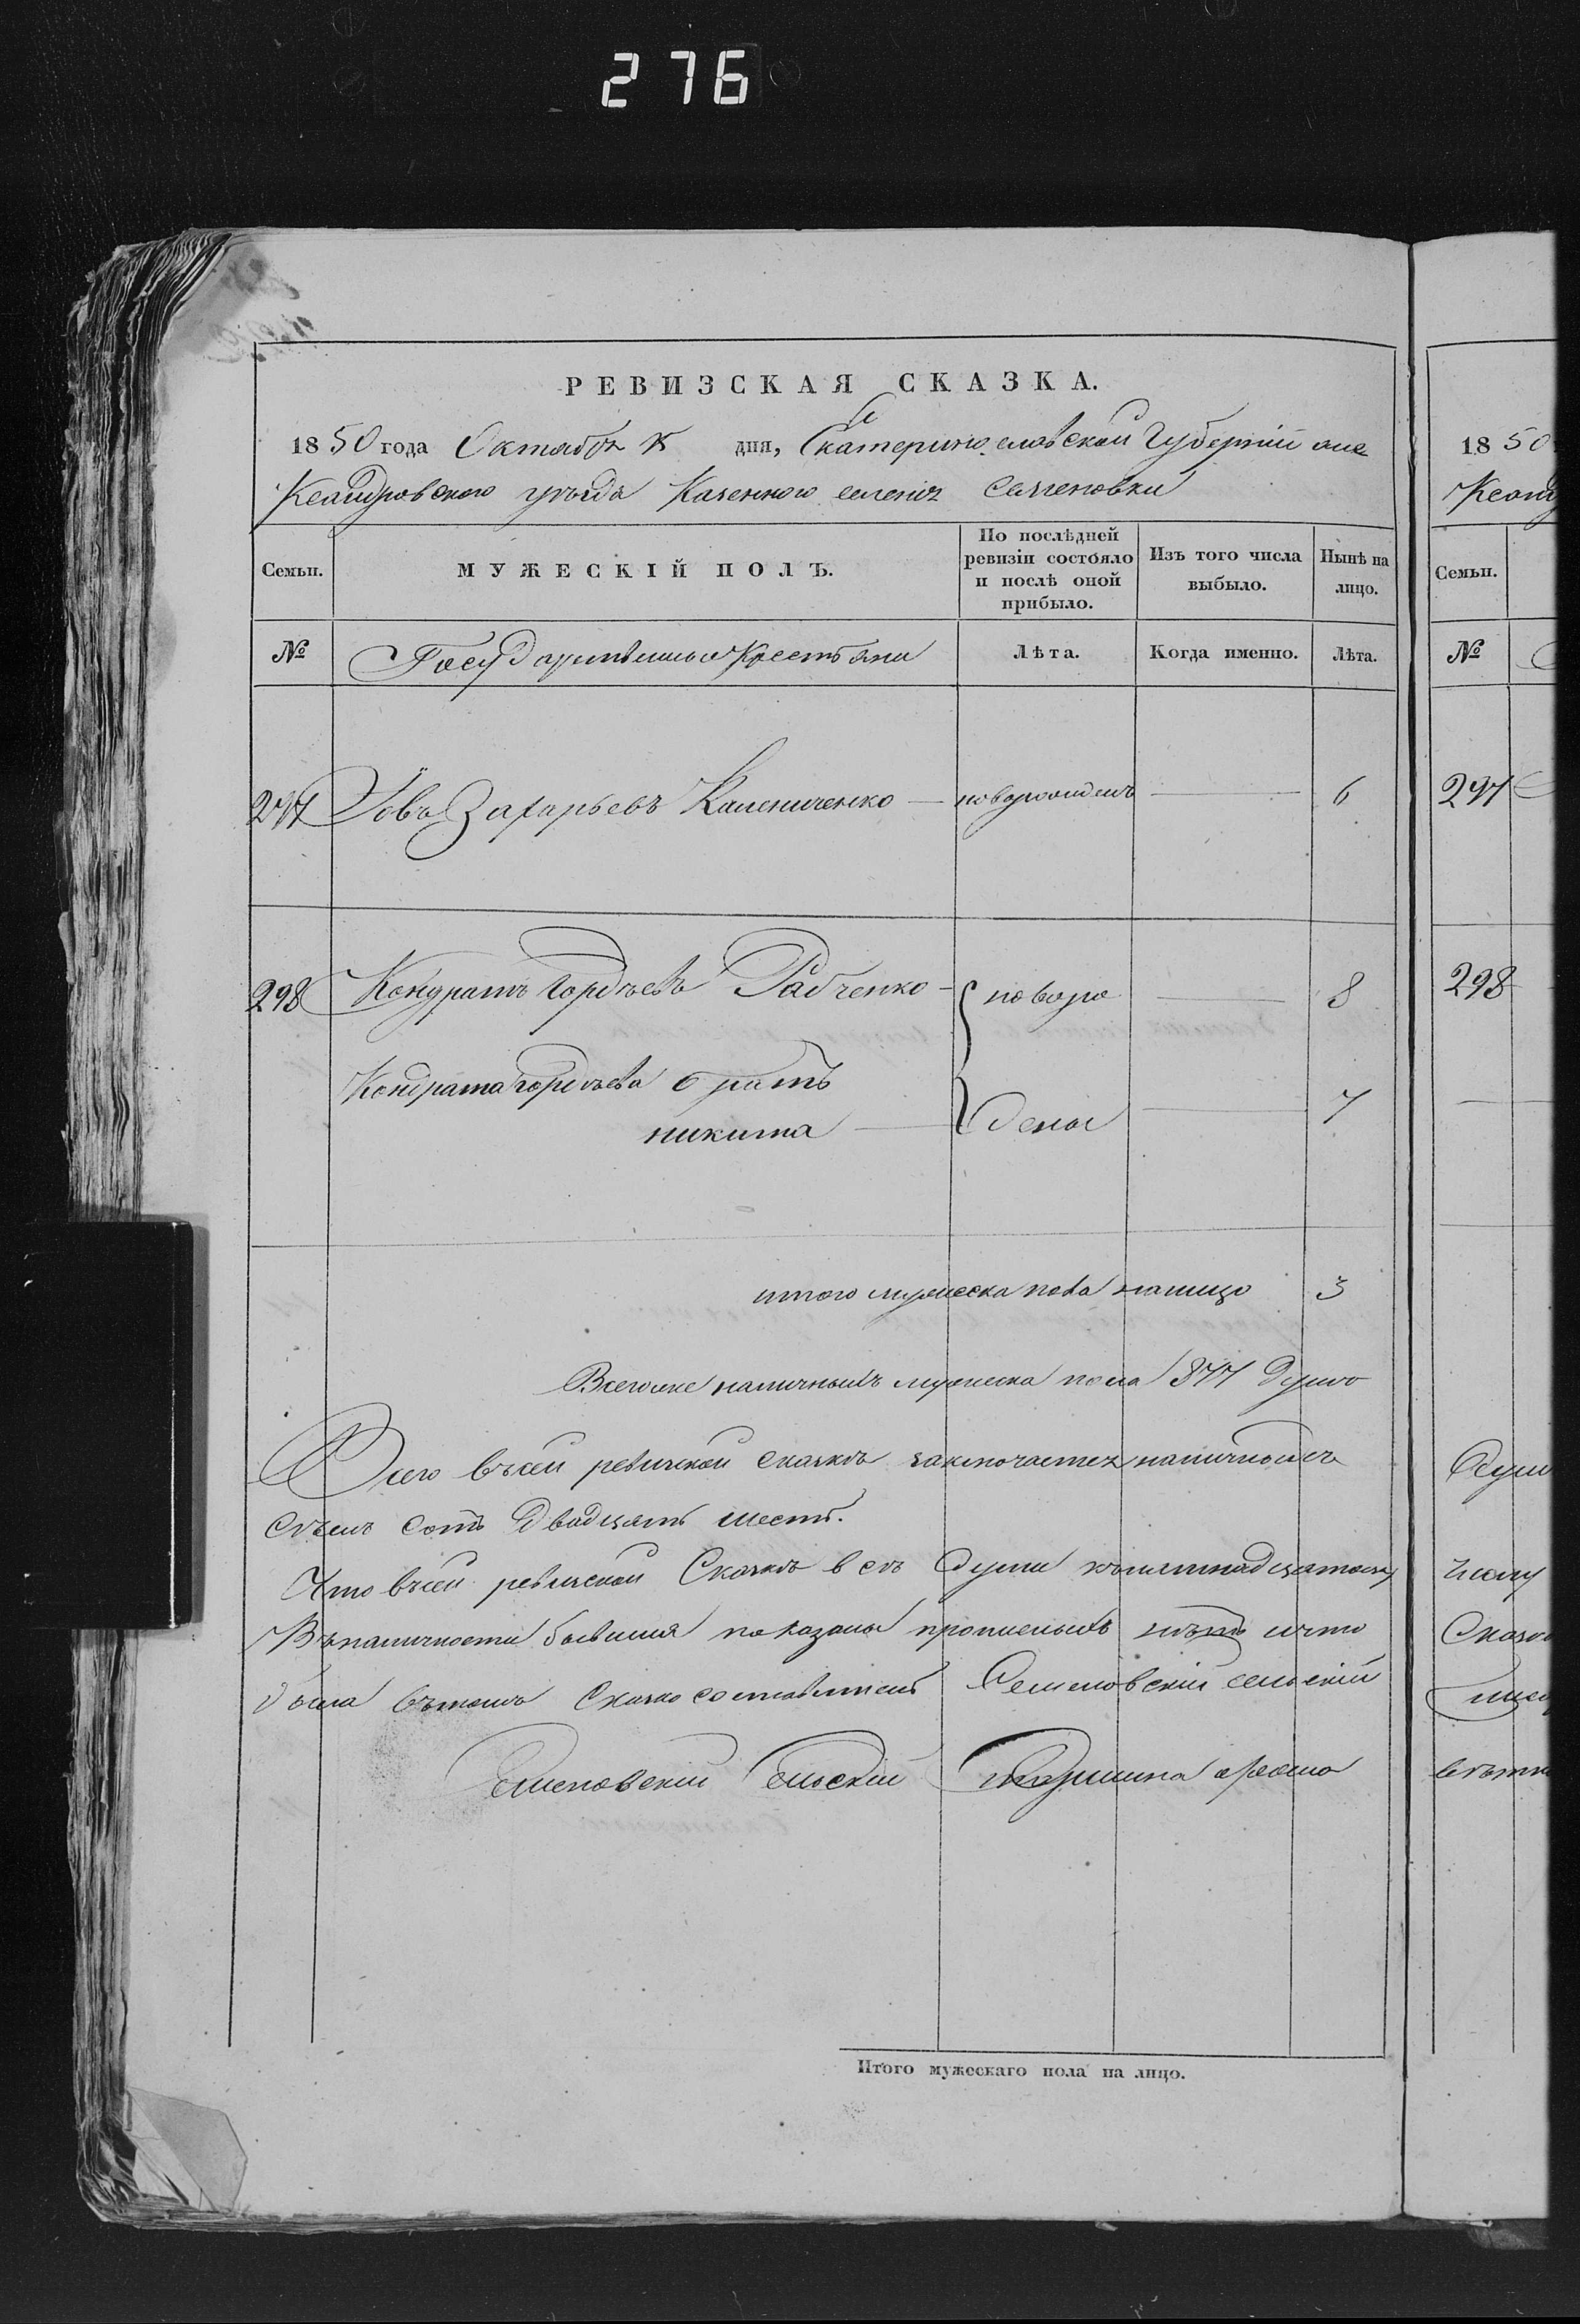 276
РЕВИЗСКАЯ СКАЗКА.
1850 года Октября 15 дня, Екатеринославской Губерніи Але
Ксандровского уѣзда Казенного селенія Семеновки
Семьи.
МУЖЕСКІЙ ПОЛЪ.
По послѣдней ревизіи состояло и послѣ оной прибыло.
Изъ того числа выбыло.
Нынѣ на лицо.
№
Государственные Крестьяне
Лѣта.
Когда именно.
Лѣта.
297 Іовъ Захарьевъ Калениченко — новорожденъ — 6
298 Кондратъ Гордѣевъ Рабченко - новоро — 8
Кондрата Гордѣева братъ
никита — дены — 7
итого мужеска пола налицо 3
Всегоже наличныхъ мужеска пола 877 Душъ
Всего въсей ревизской сказкѣ заключается наличныхъ
сотъ Двадцать шесть.
Что въсей ревизской Сказкѣ всѣ Души
Въналичности бывшия показаны прописныхъ нѣтъ
Семеновскій сельскій
Семеновскій Сельскій Старшина
Итого мужескаго пола на лицо.
1850
Ксанд
Семьи.
№
297
298
Душ
числу
Сказк